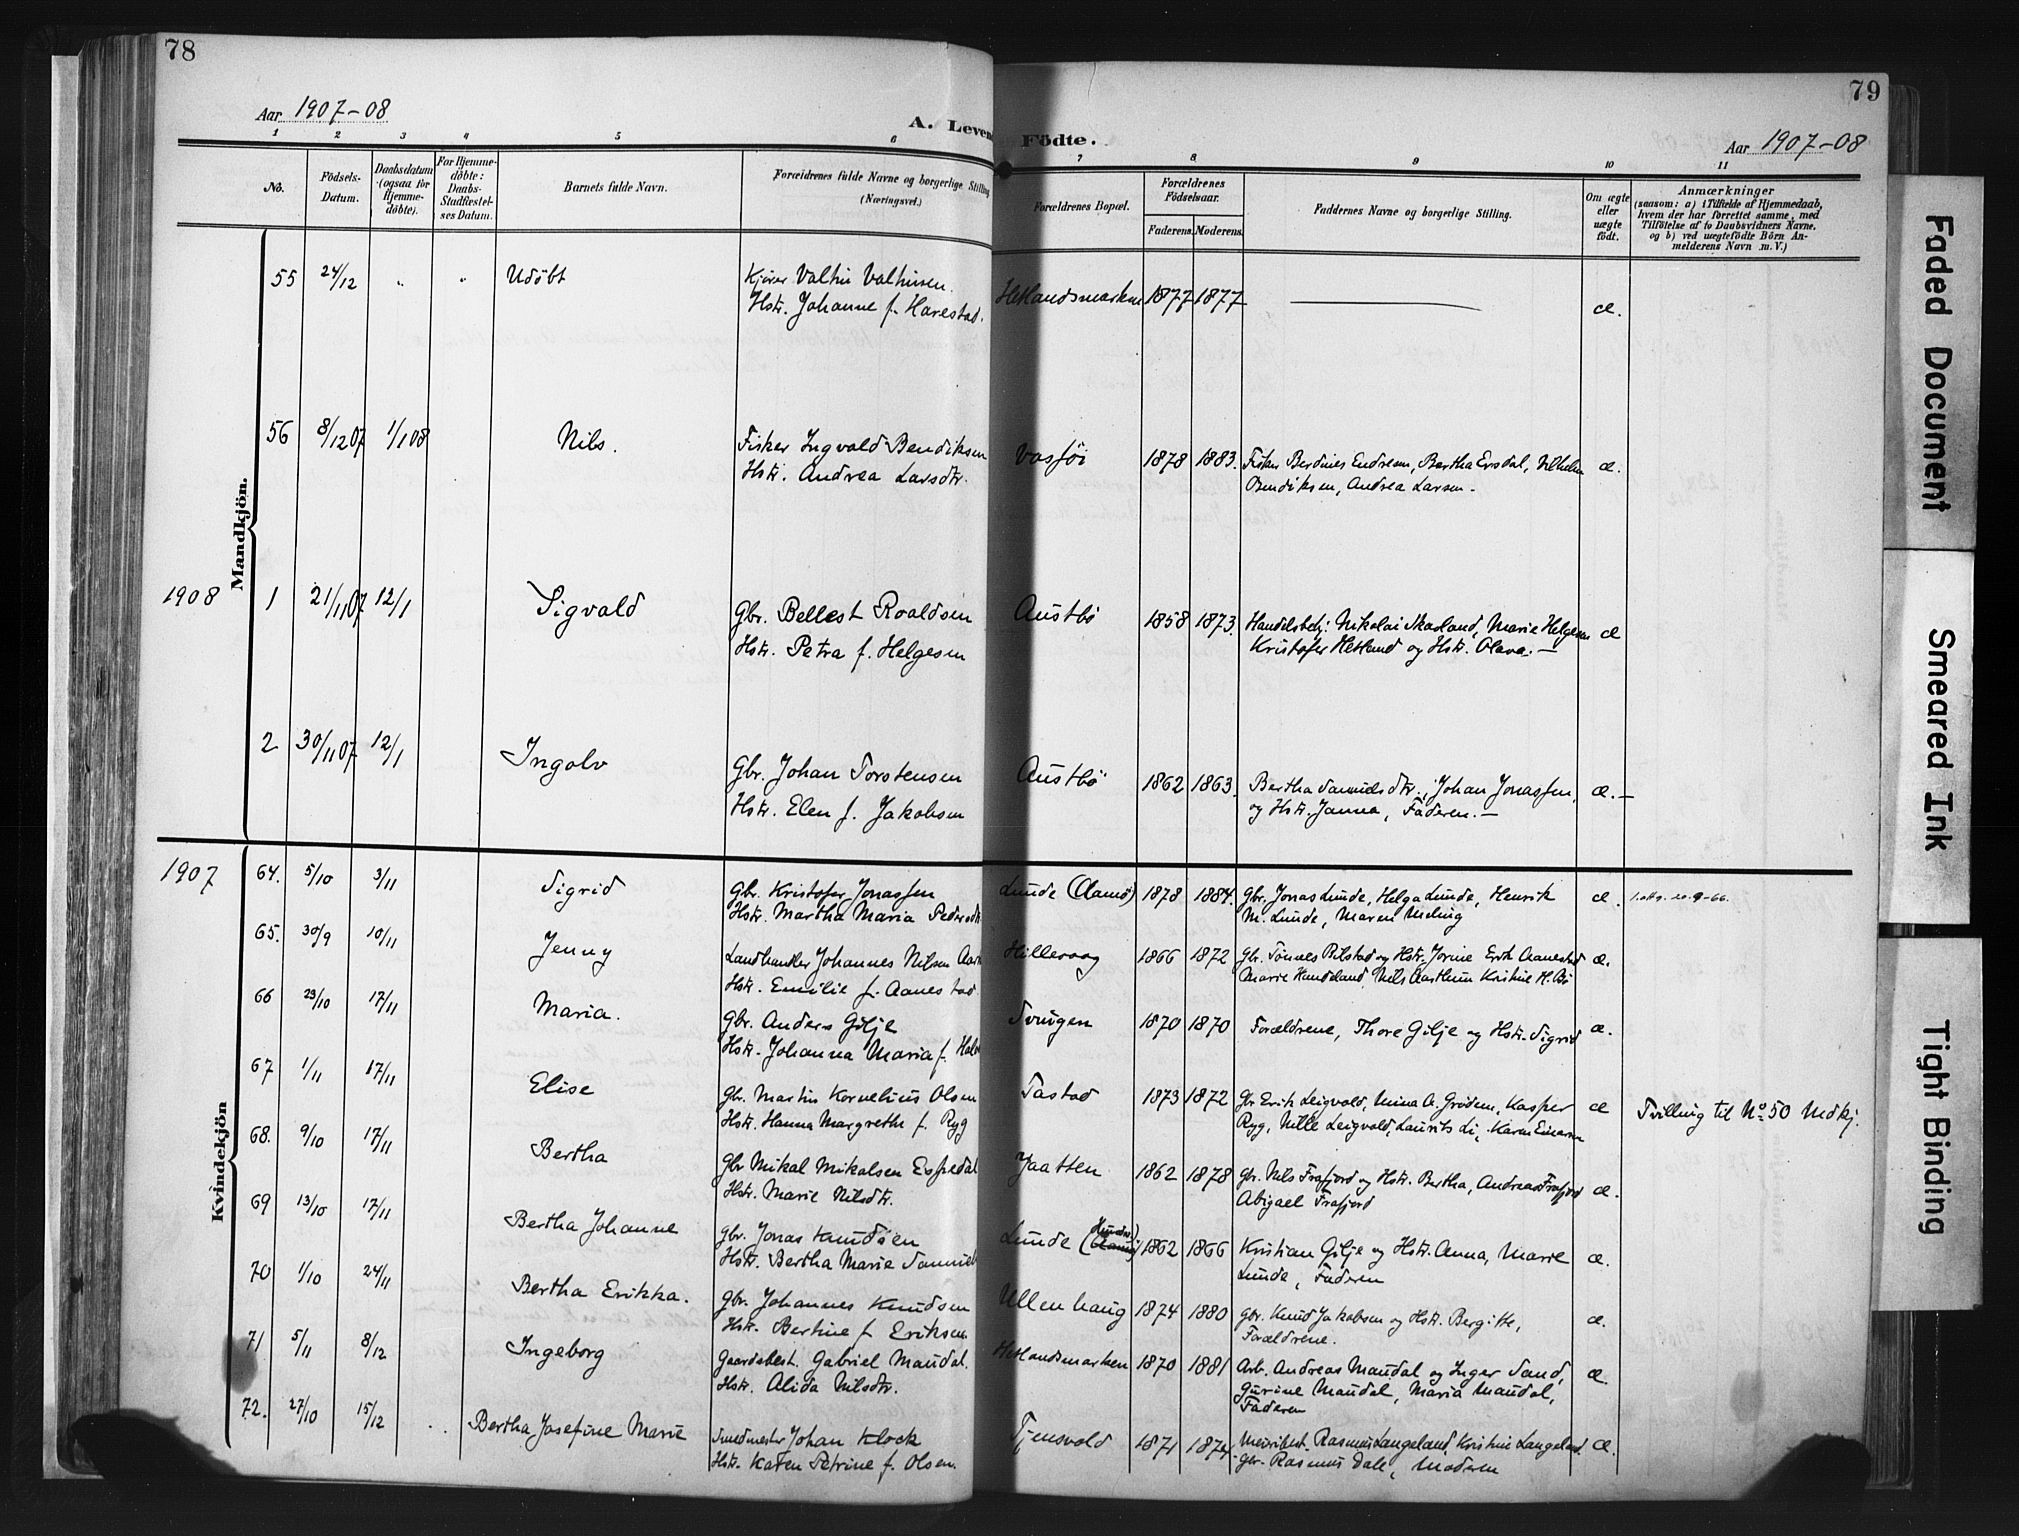 78
79
Aar 1907-08
A. Levende Födte.
Aar 1907-08
1 2 3 4 5 6 7 8 9 10 11
No.
Födsels-Datum.
Daabsdatum (ogsaa for Hjemme-döbte).
For Hjemme-döbte: Daabs-Stadfæstel-ses Datum.
Barnets fulde Navn.
Forældrenes fulde Navne og borgerlige Stilling
(Næringsvei.)
Forældrenes Bopæl.
Forældrenes Födselsaar.
Faderens. Moderens.
Faddernes Navne og borgerlige Stilling.
Om ægte eller uægte födt.
Anmærkninger
(saasom: a) i Tilfælde af Hjemmedaab,
hvem der har forrettet samme, med
Tilföielse af to Daabsvidners Navne,
og b) ved uægtefödte Börn An-
melderens Navn m. V.)
Mandkjön.
55 24/12 " " Udöbt Kjører Valtin Valtinsen. Hetlandsmarken 1877 1877 æ.
Hstr. Johanne f. Harestad.
56 8/12 07 1/1 08 Nils. Fisker Ingvald Bendiksen Vasföi 1878 1883. Fisker Berdines Endresen, Bertha Ersdal, Vilhelm æ.
Hstr. Andrea Larsdtr. Bendiksen, Andrea Larsen.
1908 1 21/11 07 12/1 Sigvald Gbr. Bellest Roaldsen Austbö 1858 1873. Handelsbetj. Nikolai Skarland, Marie Helgesen æ
Hstr. Petra f. Helgesen Kristofer Hetland og Hstr. Olava. —
2 30/11 07 12/1 Ingolv Gbr. Johan Torstensen Austbö 1862 1863. Bertha Samuelsdtr., Johan Jonassen, æ. —
Hstr. Elen f. Jakobsen og Hstr. Janna, Faderen. —
1907
Kvindekjön
64. 5/10 3/11 Sigrid Gbr. Kristofer Jonassen Lunde (Aamö) 1878 1884. Gbr. Jonas Lunde, Helga Lunde, Henrik æ. 20.9-66.
Hstr. Martha Maria Pedersdtr M. Lunde, Maren Meling
65. 30/9 10/11 Jenny Landhandler Johannes Nilsen Hillevaag 1866 1872 Gbr. Tönnes Bilstad og Hstr. Jorine Erth Aanestad æ.
Hstr. Emilie f. Aanestad. Marie Handeland, Nils Aarthun Kristine H. Bö
66 23/10 17/11 Maria. Gbr. Anders Gilje Svingen 1870 1870 Forældrene, Thore Gilje og Hstr. Sigrid æ.
Hstr. Johanna Maria f.
67 1/11 17/11 Elise Gbr. Martin Kornelius Olsen Tastad 1873 1872 Gbr. Erik Leigvold, Mina A. Gröden, Kasper æ Tvilling til No 50 Mdkj.
Hstr. Hanna Margrethe f. Ryg Ryg, Nille Leigvold, Laurits Li, Karen Einarsen
68. 9/10 17/11 Bertha Gbr Mikal Mikalsen Espedal Jaatten 1862 1878 Gbr. Nils Frafjord og Hstr. Bertha, Andreas Frafjord æ.
Hstr. Marie Nilsdtr. Abigael Frafjord
69 13/10 17/11 Bertha Johanne Gbr. Jonas Knudsen Lunde (Aamö) 1862 1866 Kristian Gilje og Hstr. Anna, Marie æ.
Hstr. Bertha Marie Samuels Lunde, Faderen
70 1/10 24/11 Bertha Erikka. Gbr. Johannes Knudsen Ullenhaug 1874 1880 Gbr. Knud Jakobsen og Hstr. Bergitte, æ.
Hstr. Bertine f. Eriksen Forældrene.
71 5/11 8/12 Ingeborg Gaardsbest. Gabriel Maudal. Hetlandsmarken 1870 1881 Arb. Andreas Maudal og Inger Sand, æ.
Hstr. Alida Nilsdtr. Gurine Maudal, Maria Maudal,
Faderen
72. 27/10 15/12 Bertha Josefine Marie Smedmester Johan Klock Tjensvold 1871 1874. Meieribest. Rasmus Langeland, Kristine Langeland æ.
Hstr. Karen Petrine f. Olsen. Gbr. Rasmus Dale, Moderen
Faded Document
Smeared Ink
Tight Binding